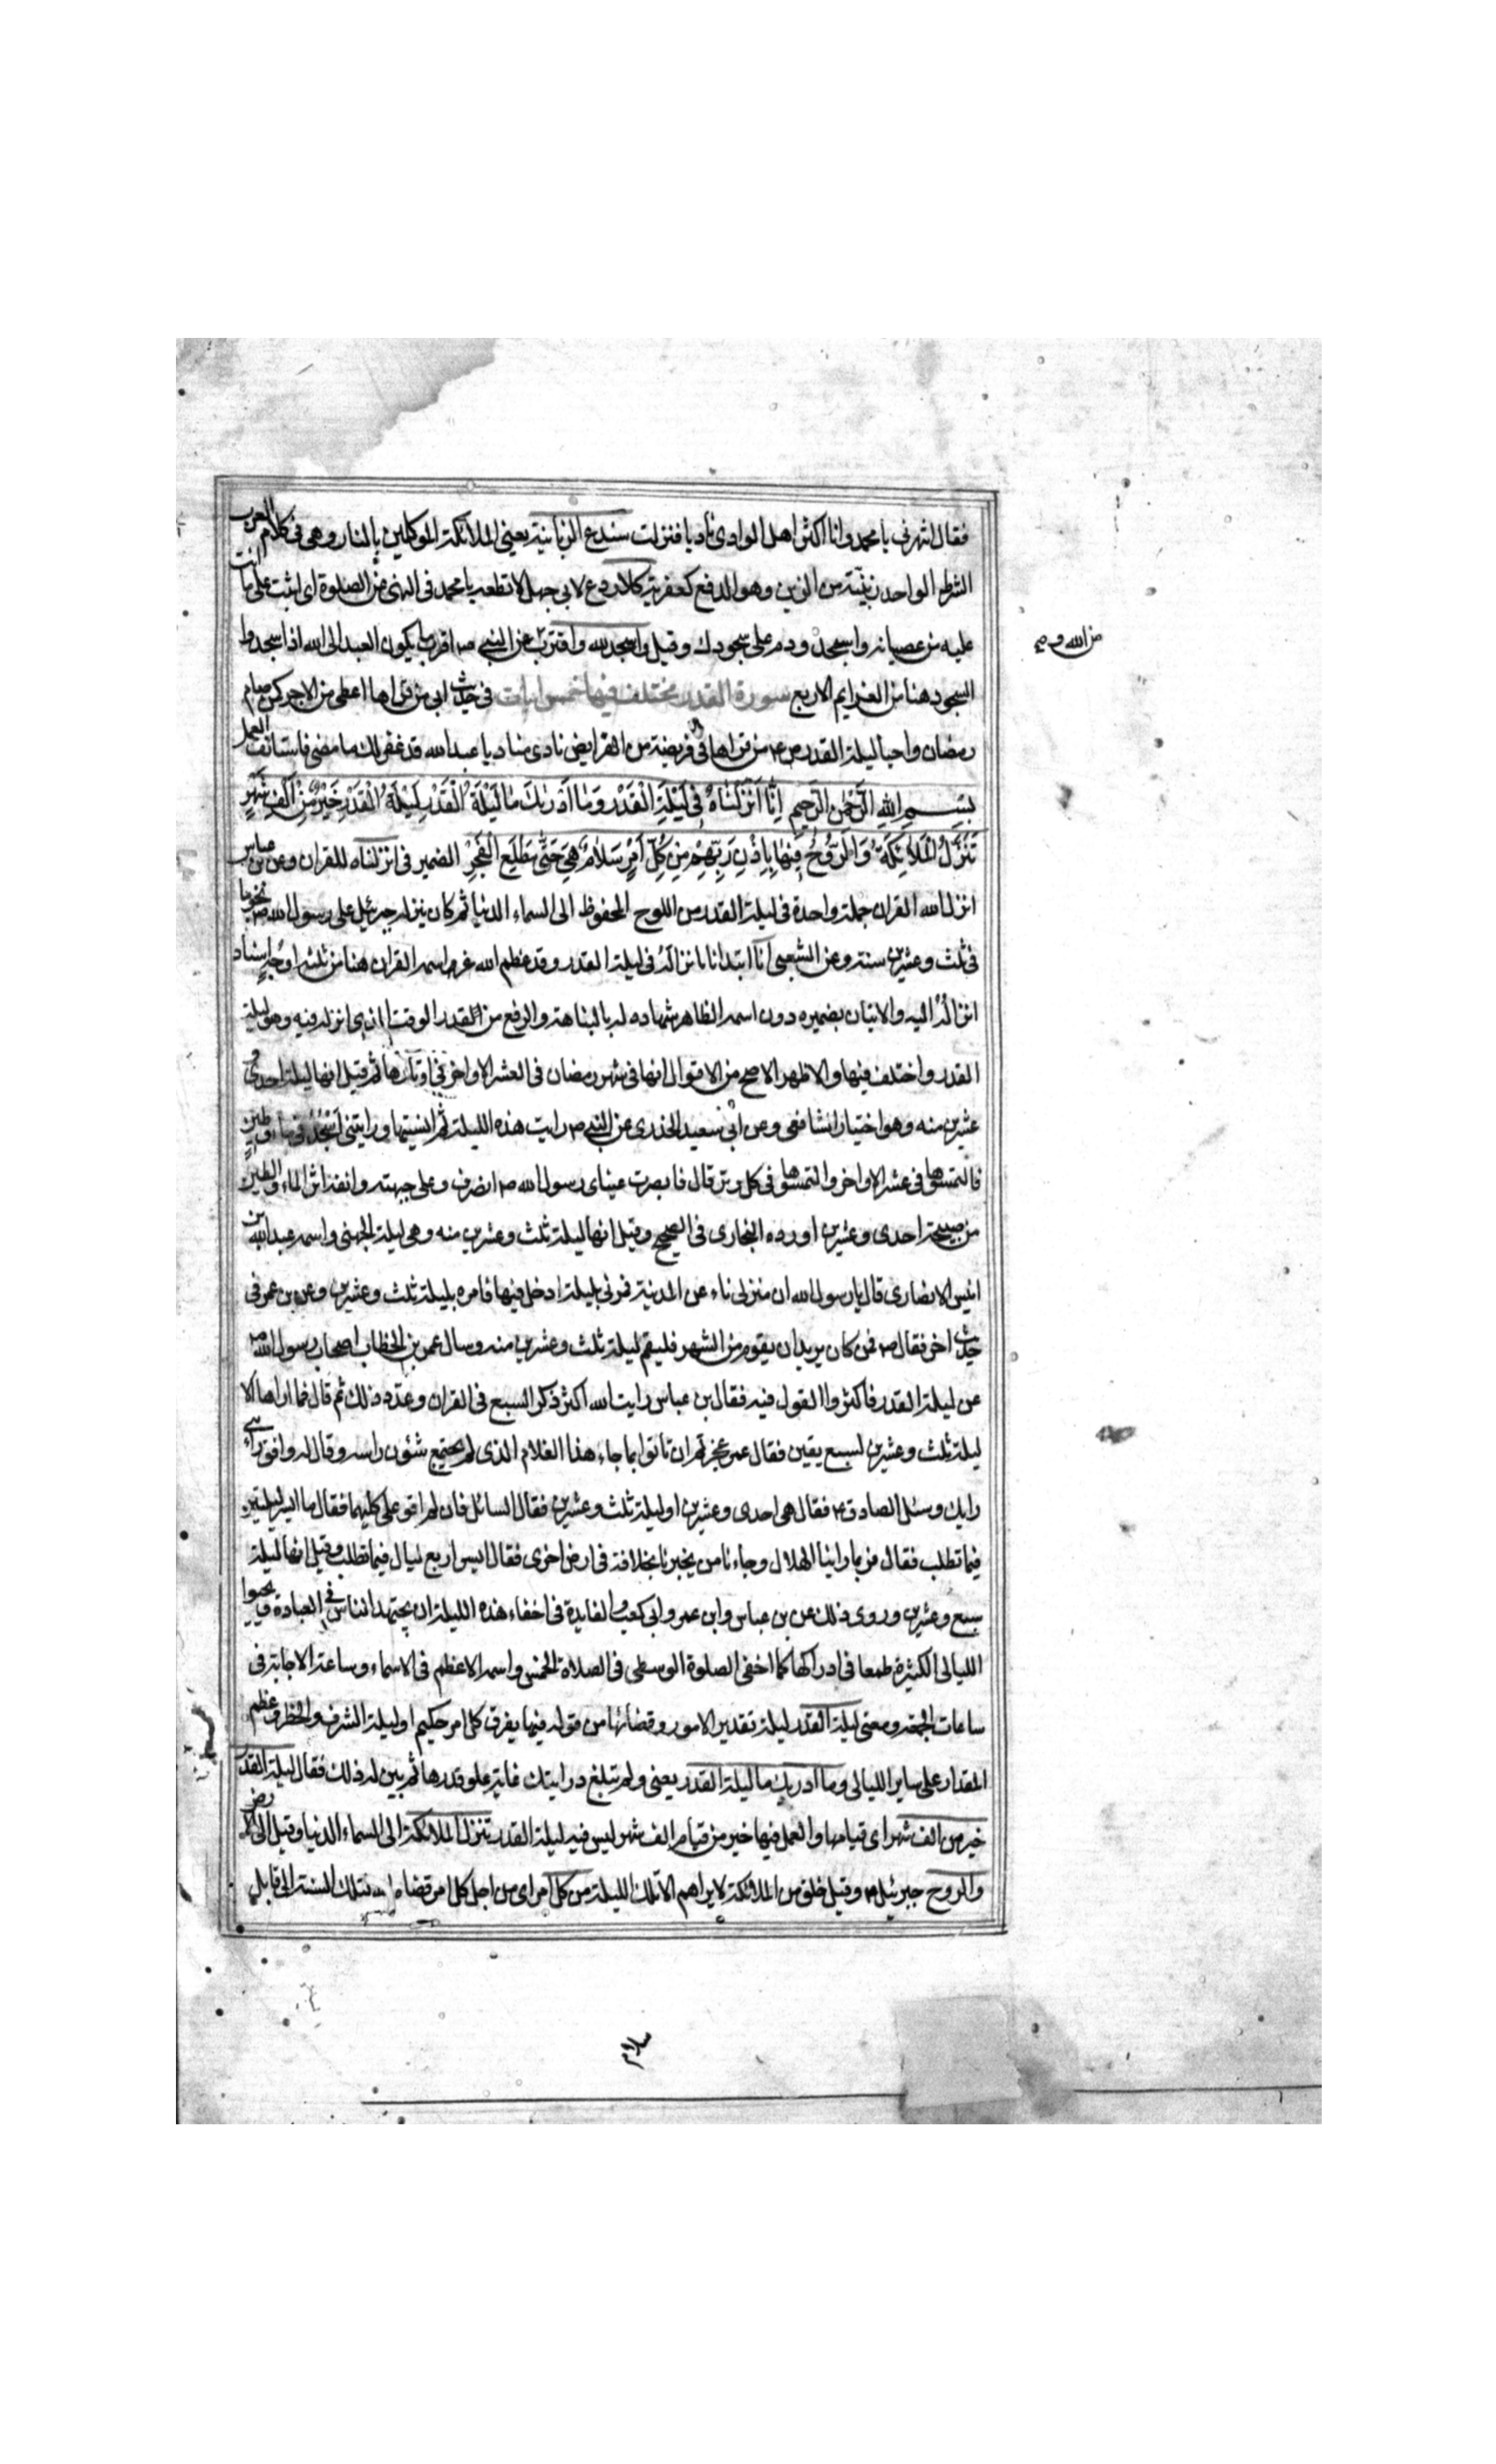 فقال اتنهرنى يا محمد وانا اكثر اهل الوادى ناديا فنزلت سندع الزبانية يعنى الملائكة الموكلين بالنار وهى فى كلام العرب
الشرط الواحد زبنية من الزبن وهو الدفع كعفرية كلا ردع لابى جهل لا تطعه يا محمد فى النهى عن الصلوة اى اثبت على ما انت
عليه من عصيانه واسجد ودم على سجودك وقيل واسجد لله واقترب عن النبى ص اقرب ما يكون العبد الى الله اذا سجد وا
السجود هنا من العزايم الاربع سورة القدر مختلف فيها خمس ايات فى حديث ابى من قراها اعطى من الاجر كمن صام
رمضان واحيا ليلة القدر ص ع من قراها فى فريضة من الفرايض نادى مناد يا عبد الله قد غفر لك ما مضى فاستانف العمل
بِسْمِ اللهِ الرَّحْمٰنِ الرَّحِيمِ اِنَّا اَنْزَلْنَاهُ فِى لَيْلَةِ الْقَدْرِ وَمَا اَدْرٰيكَ مَا لَيْلَةُ الْقَدْرِ لَيْلَةُ الْقَدْرِ خَيْرٌ مِنْ اَلْفِ شَهْرٍ
تَنَزَّلُ الْمَلَائِكَةُ وَالرُّوحُ فِيهَا بِاِذْنِ رَبِّهِمْ مِنْ كُلِّ اَمْرٍ سَلَامٌ هِىَ حَتّٰى مَطْلَعِ الْفَجْرِ الضمير فى انزلناه للقران وعن بن عباس
انزل الله القران جملة واحدة فى ليلة القدر من اللوح المحفوظ الى السماء الدنيا ثم كان ينزله جبرئيل على رسول الله ص نجوما
فى ثلث وعشرين سنة وعن الشعبى انا ابتدانا بانزاله فى ليلة القدر وقد عظم الله عز اسمه القران هنا من ثلثة اوجه اسناد
انزاله اليه والاتيان بضميره دون اسمه الظاهر شهاده له بالنباهة والرفع من القدر الوقت الذى انزله فيه وهو ليلة
القدر واختلف فيها والاظهر الاصح من الاقوال انها فى شهر رمضان فى العشر الاواخر فى اوتارها ثم قيل انها ليلة احدى و
عشرين منه وهو اختيار الشافعى وعن ابى سعيد الخدرى عن النبى ص رايت هذه الليلة ثم انسيتها ورايتنى اسجد فى ماء وطين
فالتمسوها فى عشر الاواخر والتمسوها فى كل وتر قال فابصرت عيناى رسول الله ص انصرف وعلى جبهته وانفه اثر الماء والطين
من صبيحة احدى وعشرين اورده البخارى فى الصحيح وقيل انها ليلة ثلث وعشرين منه وهى ليلة الجهنى واسمه عبد الله بن
انيس الانصارى قال يا رسول الله ان منزلى ناء عن المدينة فمرنى بليلة ادخل فيها فامره بليلة ثلث وعشرين وعن بن عمر فى
حديث اخر فقال ص فمن كان يريد ان يقوم من الشهر فليقم ليلة ثلث وعشرين منه وسال عمر بن الخطاب اصحاب رسول الله ص
عن ليلة القدر فاكثروا القول فيه فقال بن عباس رايت الله اكثر ذكر السبع فى القران وعدد ذلك ثم قال فما اراها الا
ليلة ثلث وعشرين لسبع يقين فقال عمر عجزتم ان تاتوا بما جاء هذا الغلام الذى لم يجتمع شئون راسه وقال له وافق رائى
رايك وسئل الصادق ع فقال هى احدى وعشرين او ليلة ثلث وعشرين فقال السائل فان لم اقو على كليهما فقال ما ايسر ليلتين
فيما تطلب فقال فربما راينا الهلال وجاءنا من يخبرنا بخلافة فى ارض اخرى فقال ايسر اربع ليال فيما تطلب وقيل انها ليلة
سبع وعشرين وروى ذلك عن بن عباس وابن عمر وابى كعب والفايدة فى اخفاء هذه الليلة ان يجتهد الناس فى العبادة ويحيوا
الليالى الكثيرة طمعا فى ادراكها كما اخفى الصلوة الوسطى فى الصلاة الخمس واسمه الاعظم فى الاسماء وساعة الاجابة فى
ساعات الجمعة ومعنى ليلة القدر ليلة تقدير الامور وقضائها من قوله فيها يفرق كل امر حكيم او ليلة الشرف والخطر وعظم
المقدار على ساير الليالى وما ادريك ما ليلة القدر يعنى ولم تبلغ درايتك غاية علو قدرها ثم بين له ذلك فقال ليلة القدر
خير من الف شهر اى قيامها والعمل فيها خير من قيام الف شهر ليس فيه ليلة القدر تنزل الملائكة الى السماء الدنيا وقيل الى الارض
والروح جبرئيل ع وقيل خلق من الملائكة لا يراهم الا تلك الليلة من كل امر اى من اجل كل امر قضاه الله لتلك السنة الى قابل
من الله وم
سلام